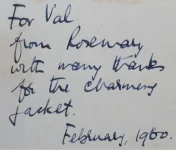 For Val
from Rosemary
with many thanks
for the charming
jacket.
February, 1960.